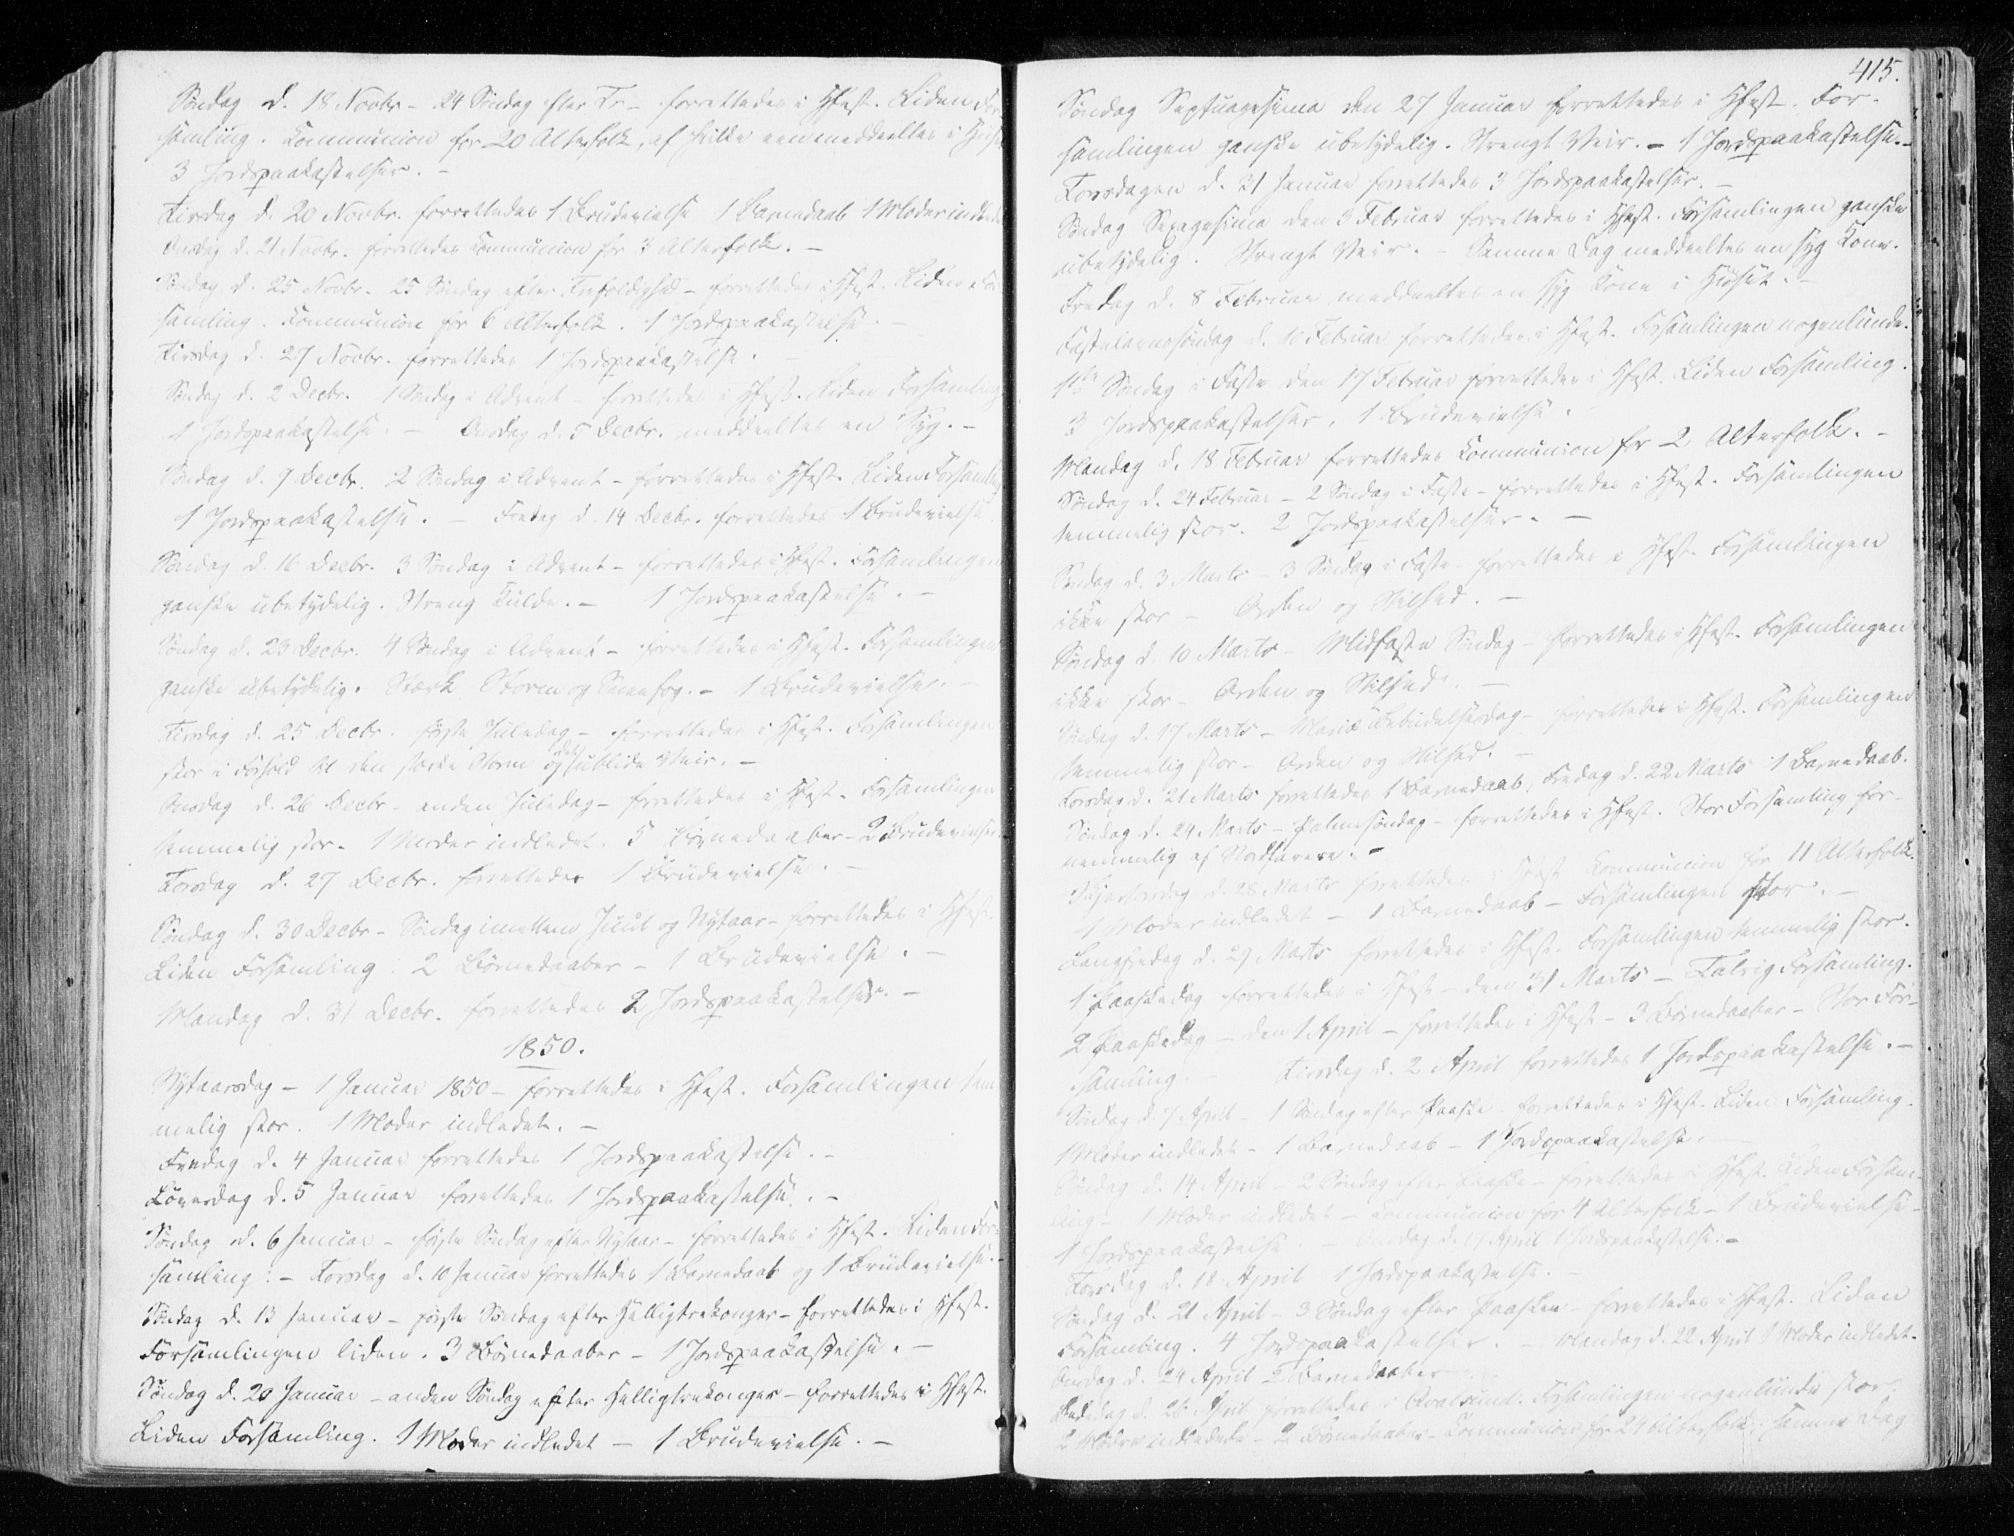 Søndag d. 18 Novbr - 24 Søndag efter Tr - forrettedes i Hfest. Liden For-
samling. Communion for 20 Alterfolk, af hvilke een meddeeltes i Huset
3 Jordspaakastelser. -
Tirsdag d. 20 Novbr. forrettedes 1 Brudevielse 1 Barnedaab 1 Moder indledt
Onsdag d. 21 Novbr. forrettedes Communion for 3 Alterfolk. -
Søndag d. 25 Novbr. 25 Søndag efter Trefoldighed - forrettedes i Hfest. Liden For-
samling. Communion for 6 Alterfolk. 1 Jordspaakastelse. -
Tirsdag d. 27 Novbr. forrettedes 1 Jordspaakastelse. -
Søndag d. 2 Decbr. 1 Søndag i Advent - forrettedes i Hfest. Liden Forsamling
1 Jordspaakastelse. - Onsdag d. 5 Decbr. meddeeltes en Syg. -
Søndag d. 9 Decbr. 2 Søndag i Advent - forrettedes i Hfest. Liden Forsamling
1 Jordspaakastelse. - Fredag d. 14 Decbr. forrettedes 1 Brudevielse
Søndag d. 16 Decbr. 3 Søndag i Advent - forrettedes i Hfest. Forsamlingen
ganske ubetydelig. Streng Kulde. - 1 Jordspaakastelse. -
Søndag d. 23 Decbr. 4 Søndag i Advent - forrettedes i Hfest. Forsamlingen
ganske ubetydelig. Stærk Storm og Sneefog. - 1 Brudevielse. -
Tirsdag d. 25 Decbr. første Juledag - forrettedes i Hfest. Forsamlingen
stor i Forhold til den stærke Storm og det ublide Veir. -
Onsdag d. 26 Decbr - anden Juledag - forrettedes i Hfest. Forsamlingen
temmelig stor. 1 Moder indledet. 5 Børnedaaber - 2 Brudevielser
Torsdag d. 27 Decbr. forrettedes 1 Brudevielse. -
Søndag d. 30 Decbr - Søndag imellem Juul og Nytaar - forrettedes i Hfest.
Liden Forsamling. 2 Børnedaaber - 1 Brudevielse. -
Mandag d. 31 Decbr. forrettedes 2 Jordspaakastelser. -
1850.
Nytaarsdag - 1 Januar 1850 - forrettedes i Hfest. Forsamlingen tem
melig stor. 1 Moder indledet. -
Fredag d. 4 Januar forrettedes 1 Jordspaakastelse. -
Løverdag d. 5 Januar forrettedes 1 Jordspaakastelse. -
Søndag d. 6 Januar - første Søndag efter Nytaar - forrettedes i Hfest. Liden For-
samling. - Torsdag d. 10 Januar forrettedes 1 Barnedaab og 1 Brudevielse. -
Søndag d. 13 Januar - første Søndag efter Helligtrekonger - forrettedes i Hfest.
Forsamlingen liden. 3 Børnedaaber - 1 Jordspaakastelse. -
Søndag d. 20 Januar - anden Søndag efter Helligtrekonger - forrettedes i Hfest.
Liden Forsamling. 1 Moder indledet - 1 Brudevielse. -
415.
Søndag Septuagesima den 27 Januar forrettedes i Hfest. For-
samlingen ganske ubetydelig. Strengt Veir. - 1 Jordspaakastelse. -
Torsdagen d. 31 Januar forrettedes 3 Jordspaakastelser. -
Søndag Sexagesima den 3 Februar forrettedes i Hfest. Forsamlingen ganske
ubetydelig. Strengt Veir. - Samme Dag meddeeltes en syg Kone.
Fredag d. 8 Februar meddeeltes en syg Kone i Huset. -
Fastelavnssøndag d. 10 Februar forrettedes i Hfest. Forsamlingen nogenlunde.
1ste Søndag i Faste den 17 Februar forrettedes i Hfest. Liden Forsamling.
3 Jordspaakastelser, 1 Brudevielse.
Mandag d. 18 Februar forrettedes Communion for 2 Alterfolk. -
Søndag d. 24 Februar - 2 Søndag i Faste - forrettedes i Hfest. Forsamlingen
temmelig stor. 2 Jordspaakastelser. -
Søndag d. 3 Marts - 3 Søndag i Faste - forrettedes i Hfest. Forsamlingen
ikke stor - Orden og Stilhed. -
Søndag d. 10 Marts - Midfaste Søndag - forrettedes i Hfest. Forsamlingen
ikke stor - Orden og Stilhed. -
Søndag d. 17 Marts - Mariæ Bebudelsesdag - forrettedes i Hfest. Forsamlingen
temmelig stor - Orden og Stilhed. -
Torsdag d. 21 Marts forrettedes 1 Barnedaab, Fredag d. 22 Marts 1 Barnedaab.
Søndag d. 24 Marts - Palmesøndag - forrettedes i Hfest. Stor Forsamling for-
nemmelig af Nordfarere. -
Skjærtorsdag d. 28 Marts forrettedes i Hfest Communion for 11 Alterfolk.
1 Moder indledet - 1 Barnedaab - Forsamlingen stor. -
Langfredag d. 29 Marts forrettedes i Hfest. Forsamlingen temmelig stor.
1 Paaskedag forrettedes i Hfest - den 31 Marts - Talrig Forsamling.
2 Paaskedag - den 1 April - forrettedes i Hfest - 3 Børnedaaber - Stor For-
samling - Tirsdag d. 2 April forrettedes 1 Jordspaakastelse. -
Søndag d. 7 April - 1 Søndag efter Paaske - forrettedes i Hfest. Liden Forsamling.
1 Moder indledet - 1 Barnedaab - 1 Jordspaakastelse. -
Søndag d. 14 April - 2 Søndag efter Paaske - forrettedes i Hfest. Liden Forsam-
ling - 1 Moder indledet - Communion for 4 Alterfolk - 1 Brudevielse -
1 Jordspaakastelse Onsdag d. 17 April 1 Jordspaakastelse. -
Torsdag d. 18 April 1 Jordspaakastelse. -
Søndag d. 21 April - 3 Søndag efter Paaske - forrettedes i Hfest. Liden
Forsamling. 4 Jordspaakastelser. - Mandag d. 22 April 1 Moder indledet.
Onsdag d. 24 April 2 Børnedaaber
Bededag d. 26 April forrettedes i Qvalsund. Forsamlingen nogenlunde stor.
2 Mødre indledede - 2 Børnedaaber - Communion for 24 Alterfolk. Samme Dag